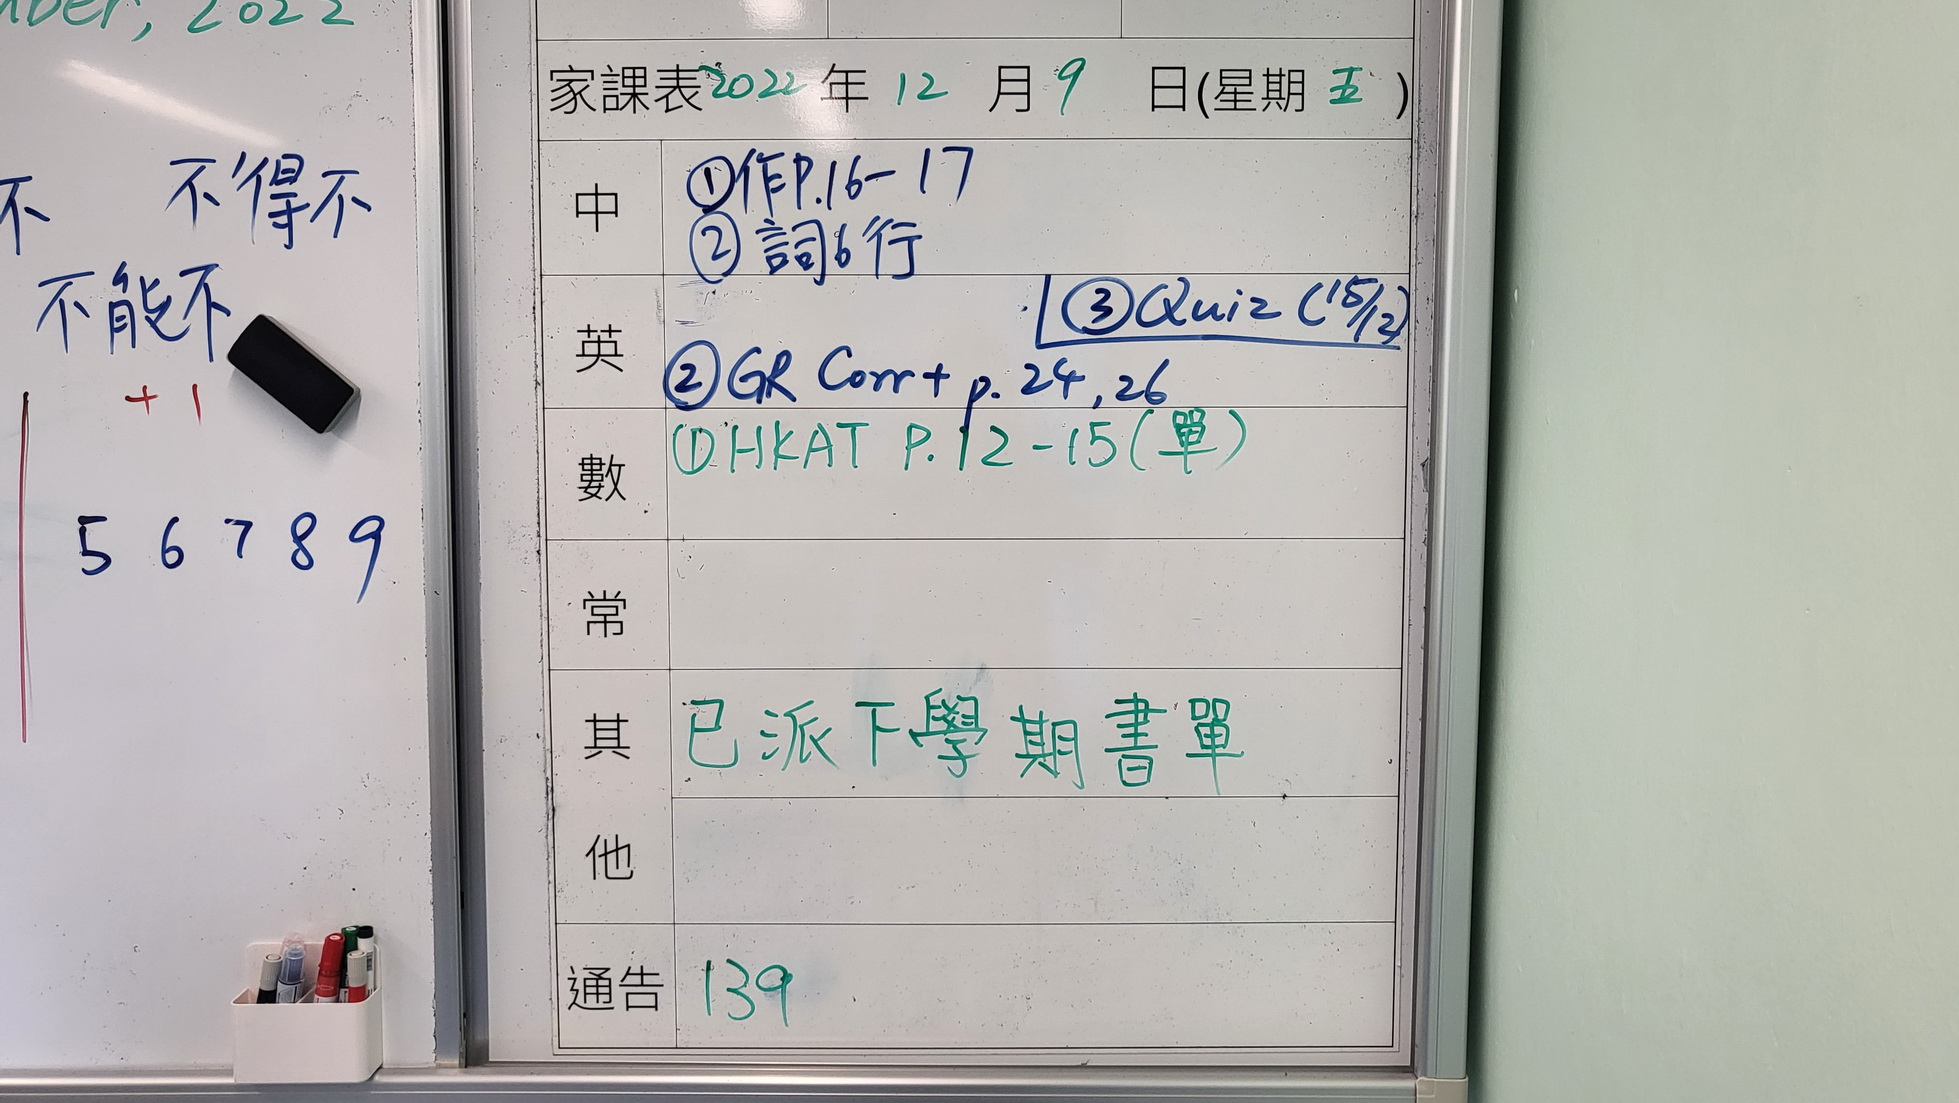 2022
不得不
不能不
+1
5 6 7 8 9
家課表 2022 年 12 月 9 日(星期 五 )
中
①作P.16-17
②詞6行
英
③Quiz (15/12)
②GR Corr + p. 24, 26
數
①HKAT P.12-15(單)
常
其他
已派下學期書單
通告 139